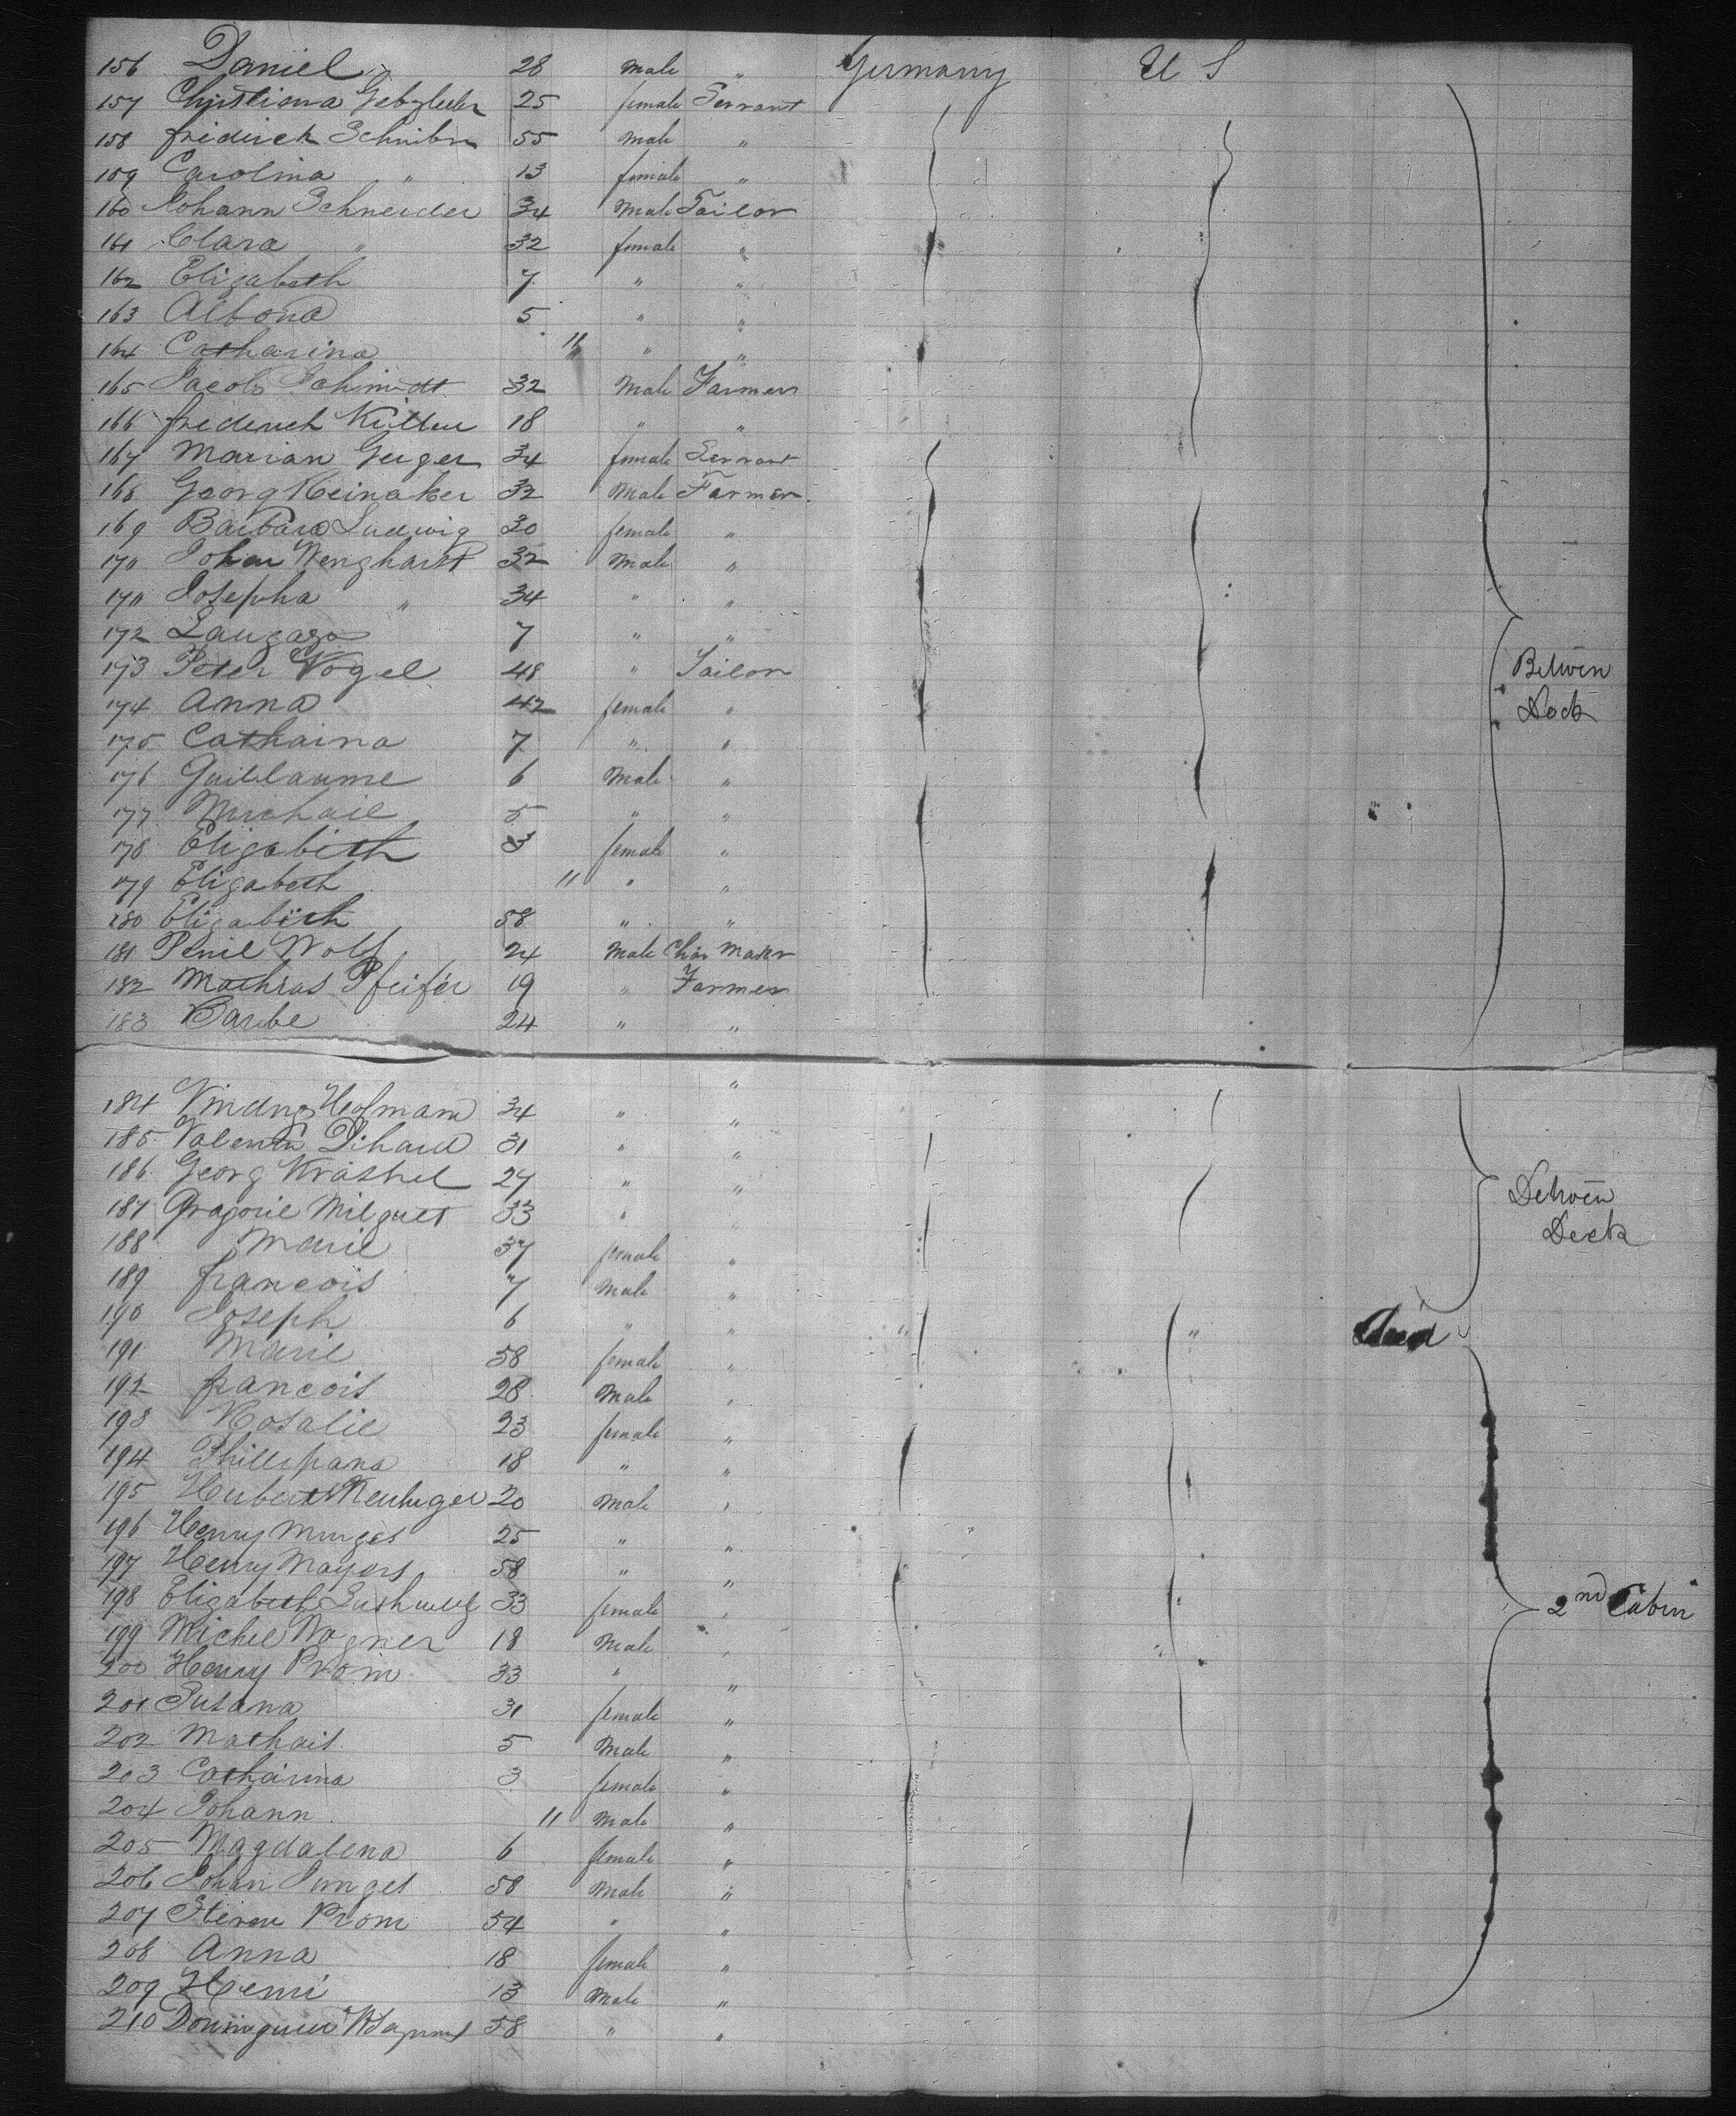 156 Daniel 28 male " Germany U S
157 Christiana 25 female Servant
158 friderick Schnibrn 55 male "
159 Carolina " 13 female "
160 Johann Schneider 34 Male Tailor
161 Clara " 32 female "
162 Elizabeth 7 " "
163 Albona 5 " "
164 Catharina 11 " "
165 Jacob Schmidt 32 Male Farmer
166 frederich 18 " "
167 Marian Gerger 34 female Servant
168 Georg Reinaker 32 Male Farmer
169 Barbara Ludwig 30 female "
170 Johan Wenghardt 32 Male "
171 Josepha " 34 " "
172 7 " "
173 Peter Vogel 48 " Tailor
174 Anna 42 female "
175 Cathaina 7 " "
176 Guillaume 6 Male "
177 Michail 5 " "
178 Elizabeth 3 female "
179 Elizabeth 11 " "
180 Elizabeth 58 " "
181 Wolf 24 Male Maker
182 Mathias Pfeifer 19 " Farmer
183 Barbe 24 " "
Betwen
Deck
184 Hofmann 34 " "
185 Valentin 31 " "
186 Georg Krashel 27 " "
187 Gragorie Milguet 33 " "
188 Marie 37 female "
189 francois 7 Male "
190 Joseph 6 " " " " died
191 Marie 58 female "
192 francois 28 Male "
193 Rosalie 23 female "
194 Phillipana 18 " "
195 Hubert 20 Male "
196 Henry Minges 25 " "
197 Henry Mayers 58 " "
198 Elizabeth 33 female "
199 Michel Wagner 18 Male "
200 Henry Prom 33 " "
201 Susana 31 female "
202 Mathais 5 Male "
203 Catharina 3 female "
204 Johann 11 Male "
205 Magdalena 6 female "
206 Johan Junges 58 Male "
207 Prom 54 " "
208 Anna 18 female "
209 Henri 13 Male "
210 58 " "
Betwen
Deck
2nd Cabin